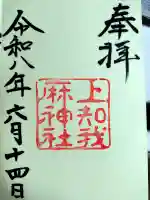 奉拝
上知我
麻神社
令和八年六月十四日